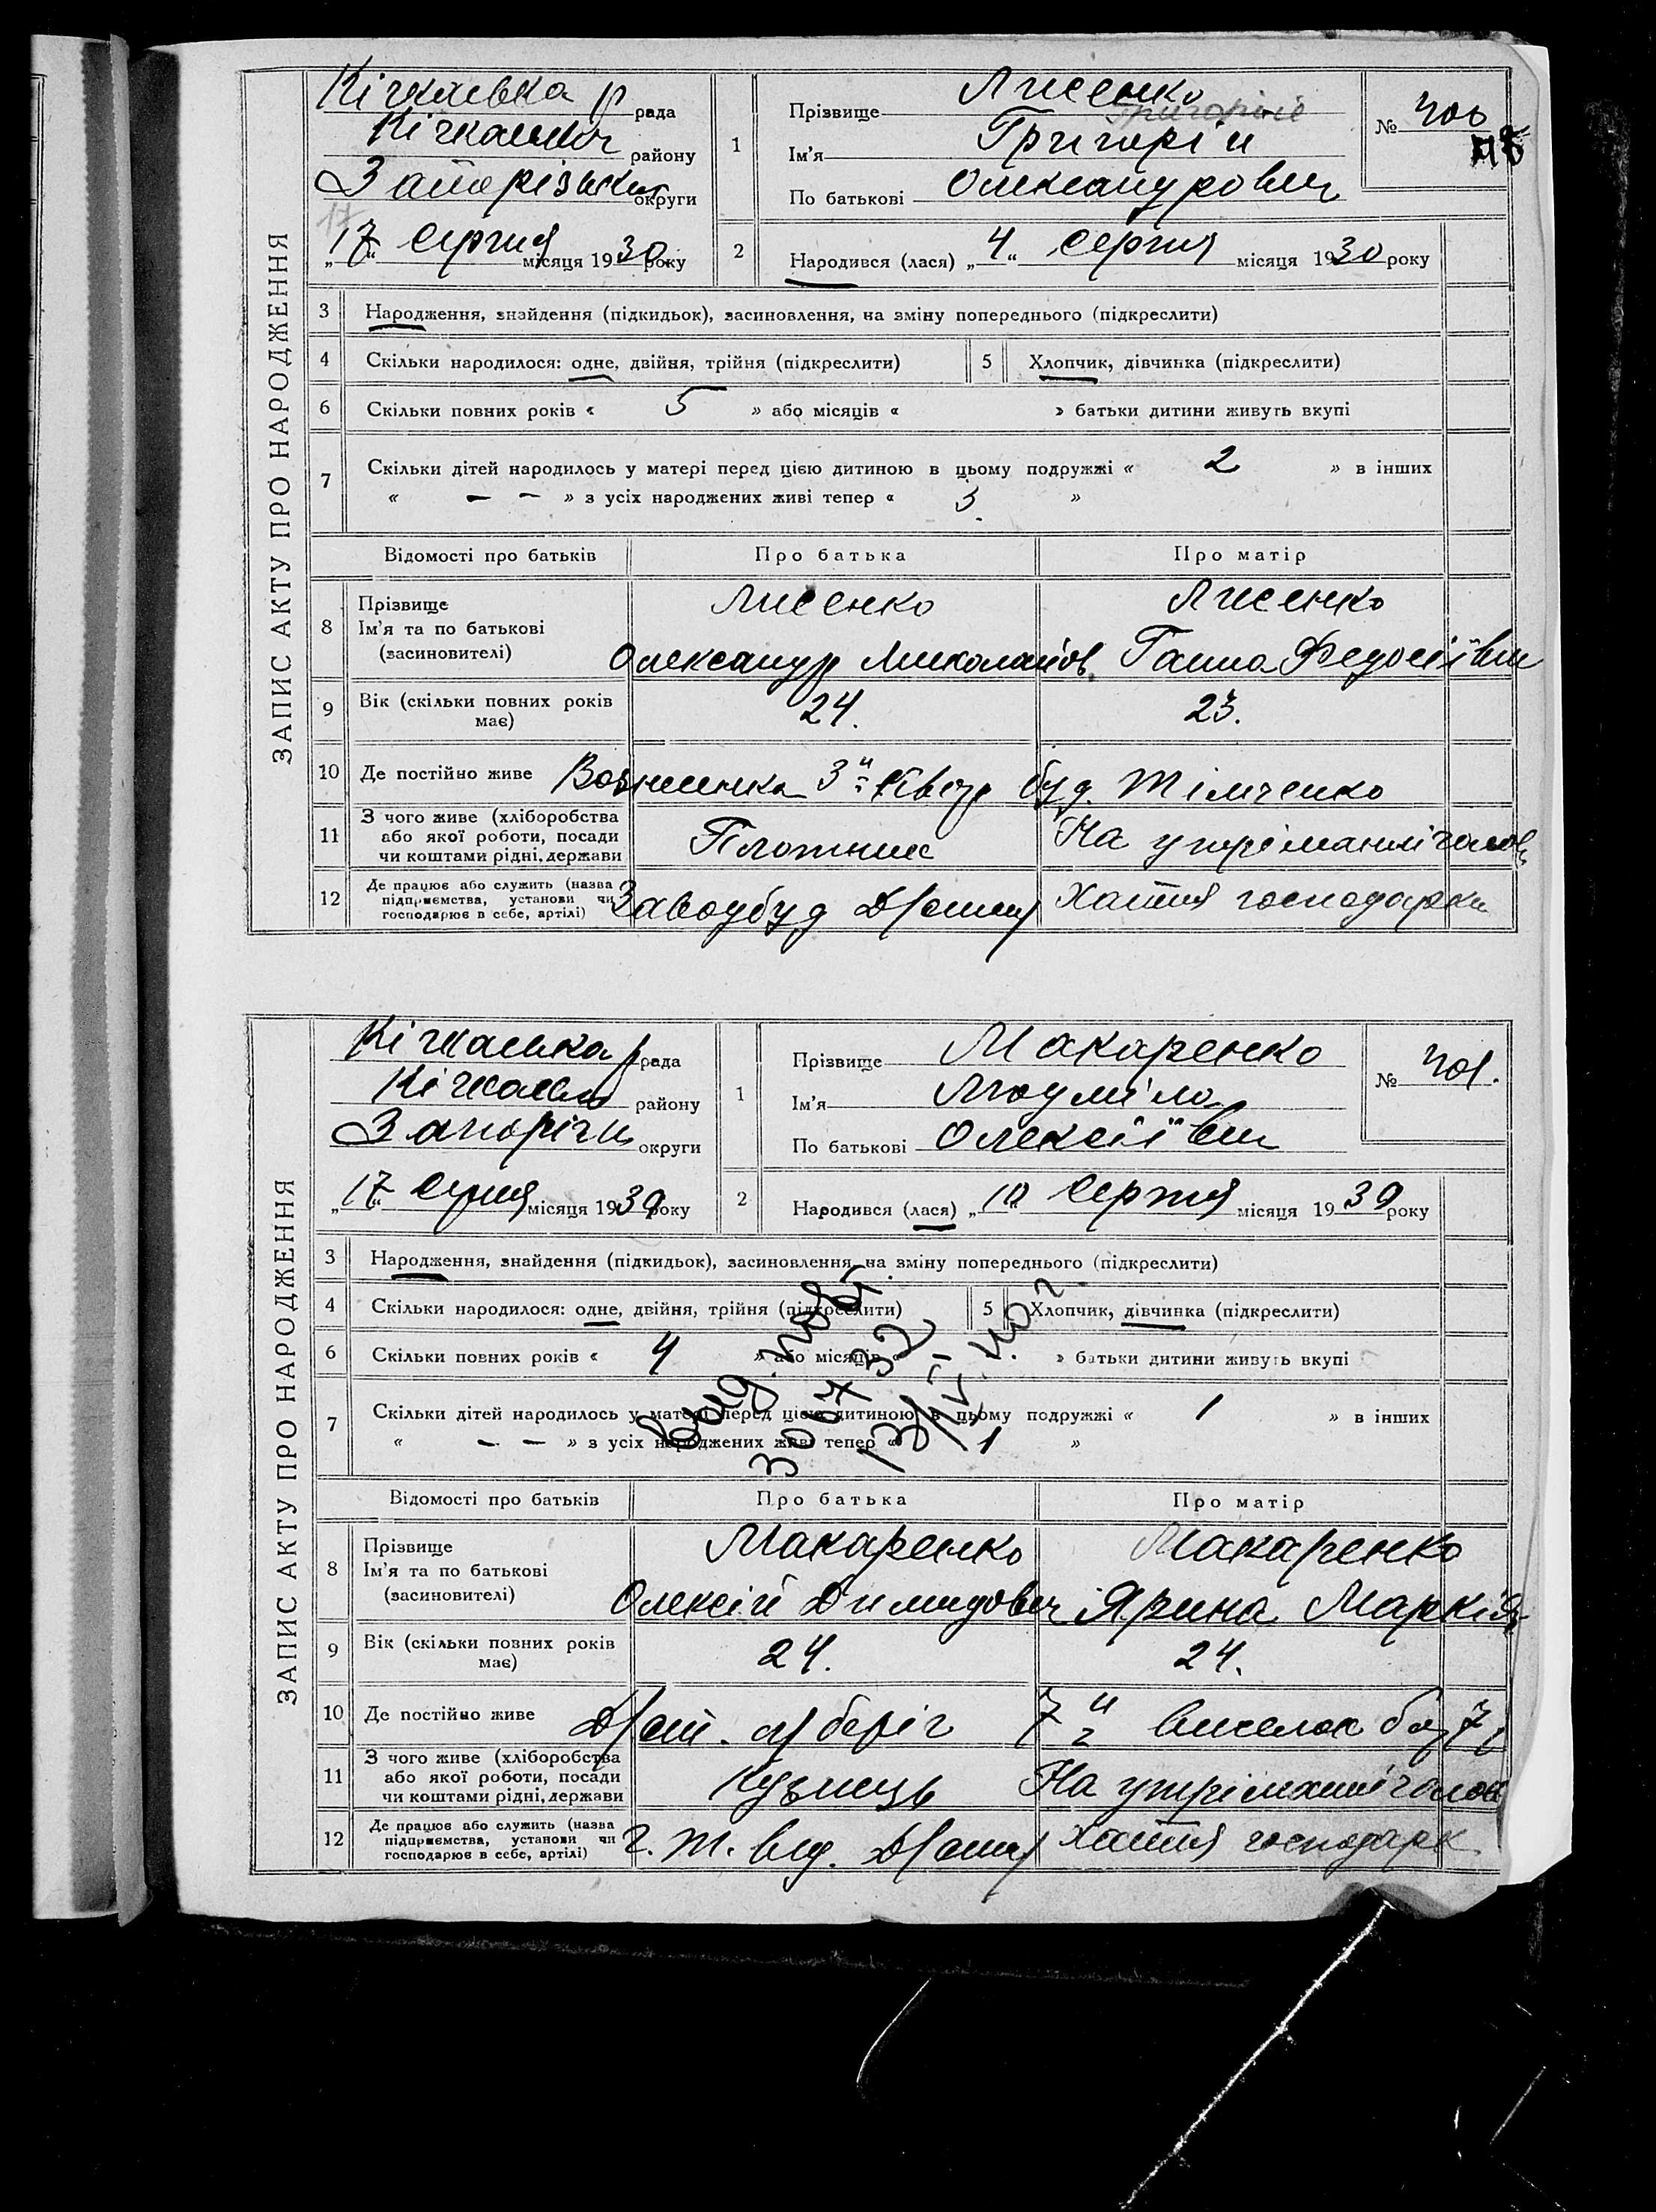 ЗАПИС АКТУ ПРО НАРОДЖЕННЯ
Кічкаська р рада
району
округи
17
„17“ Серпня місяця 1930 року
1
Прізвище Лисенко
Григоріе
Ім'я Григорій
По батькові Олександрович
№ 400
2
Народився (лася) „4“ Серпня місяця 1930 року
3 Народження, знайдення (підкидьок), засиновлення, на зміну попереднього (підкреслити)
4 Скільки народилося: одне, двійня, трійня (підкреслити) 5 Хлопчик, дівчинка (підкреслити)
6 Скільки повних років « 5 » або місяців « » батьки дитини живуть вкупі
7 Скільки дітей народилось у матері перед цією дитиною в цьому подружжі « 2 » в інших
« — — » з усіх народжених живі тепер « 3 »
Відомості про батьків Про батька Про матір
8 Прізвище Лисенко Лисенко
Ім'я та по батькові
(засиновителі) Олександр Миколайов. Ганна Федосіївн
9 Вік (скільки повних років має) 24. 23.
10 Де постійно живе Вознесенка 3й буд. Тімченко
11 З чого живе (хліборобства
або якої роботи, посади
чи коштами рідні, держави Плотник На утріманні чолов
12 Де працює або служить (назва
підприємства, установи чи
господарює в себе, артілі) Заводбуд Хатня господарка
ЗАПИС АКТУ ПРО НАРОДЖЕННЯ
Кічкаська р рада
району
округи
„17“ Серпня місяця 1930 року
1
Прізвище Макаренко
Ім'я Людміла
По батькові Олексіївн
№ 401.
2
Народився (лася) „10“ Серпня місяця 1930 року
3 Народження, знайдення (підкидьок), засиновлення, на зміну попереднього (підкреслити)
4 Скільки народилося: одне, двійня, трійня (підкреслити) 5 Хлопчик, дівчинка (підкреслити)
6 Скільки повних років « 4 » або місяців « » батьки дитини живуть вкупі
7 Скільки дітей народилось у матері перед цією дитиною в цьому подружжі « 1 » в інших
« — — » з усіх народжених живі тепер « 1 »
Відомості про батьків Про батька Про матір
8 Прізвище Макаренко Макаренко
Ім'я та по батькові
(засиновителі) Олексій Димидович Ярина Маркія
9 Вік (скільки повних років має) 24. 24.
10 Де постійно живе беріг 7й виселок
11 З чого живе (хліборобства
або якої роботи, посади
чи коштами рідні, держави Кузнець На утріманні чолов
12 Де працює або служить (назва
підприємства, установи чи
господарює в себе, артілі) Хатня господарк